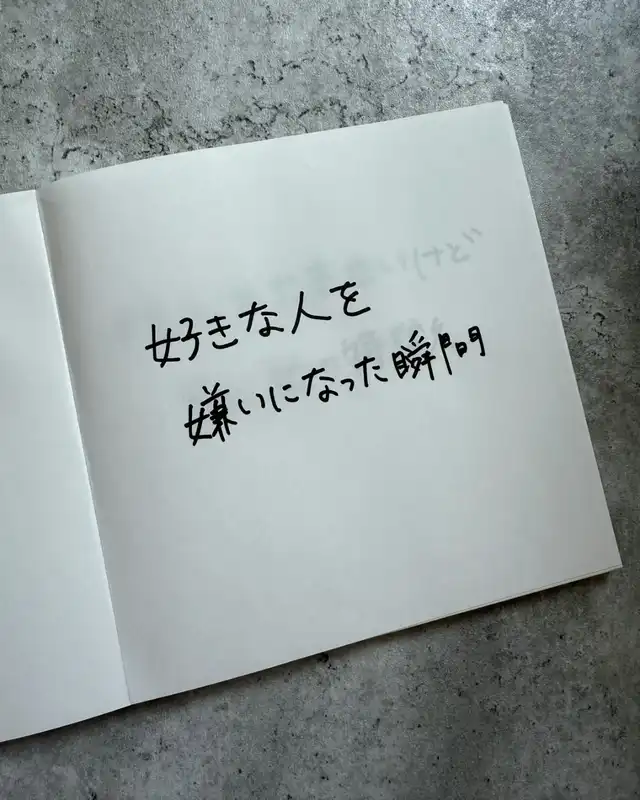 好きな人を
嫌いになった瞬間